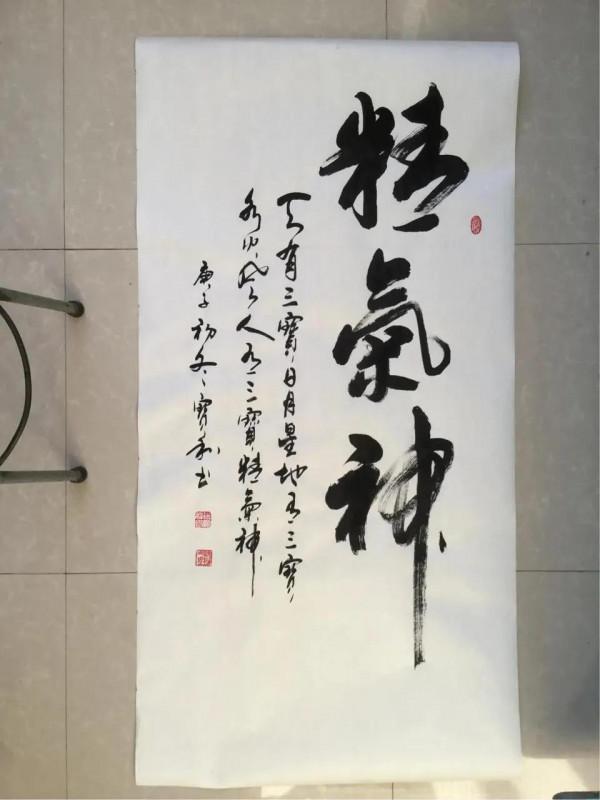 精氣神
天有三寶日月星地有三寶
水火風人有三寶精氣神
庚子初冬寶利书